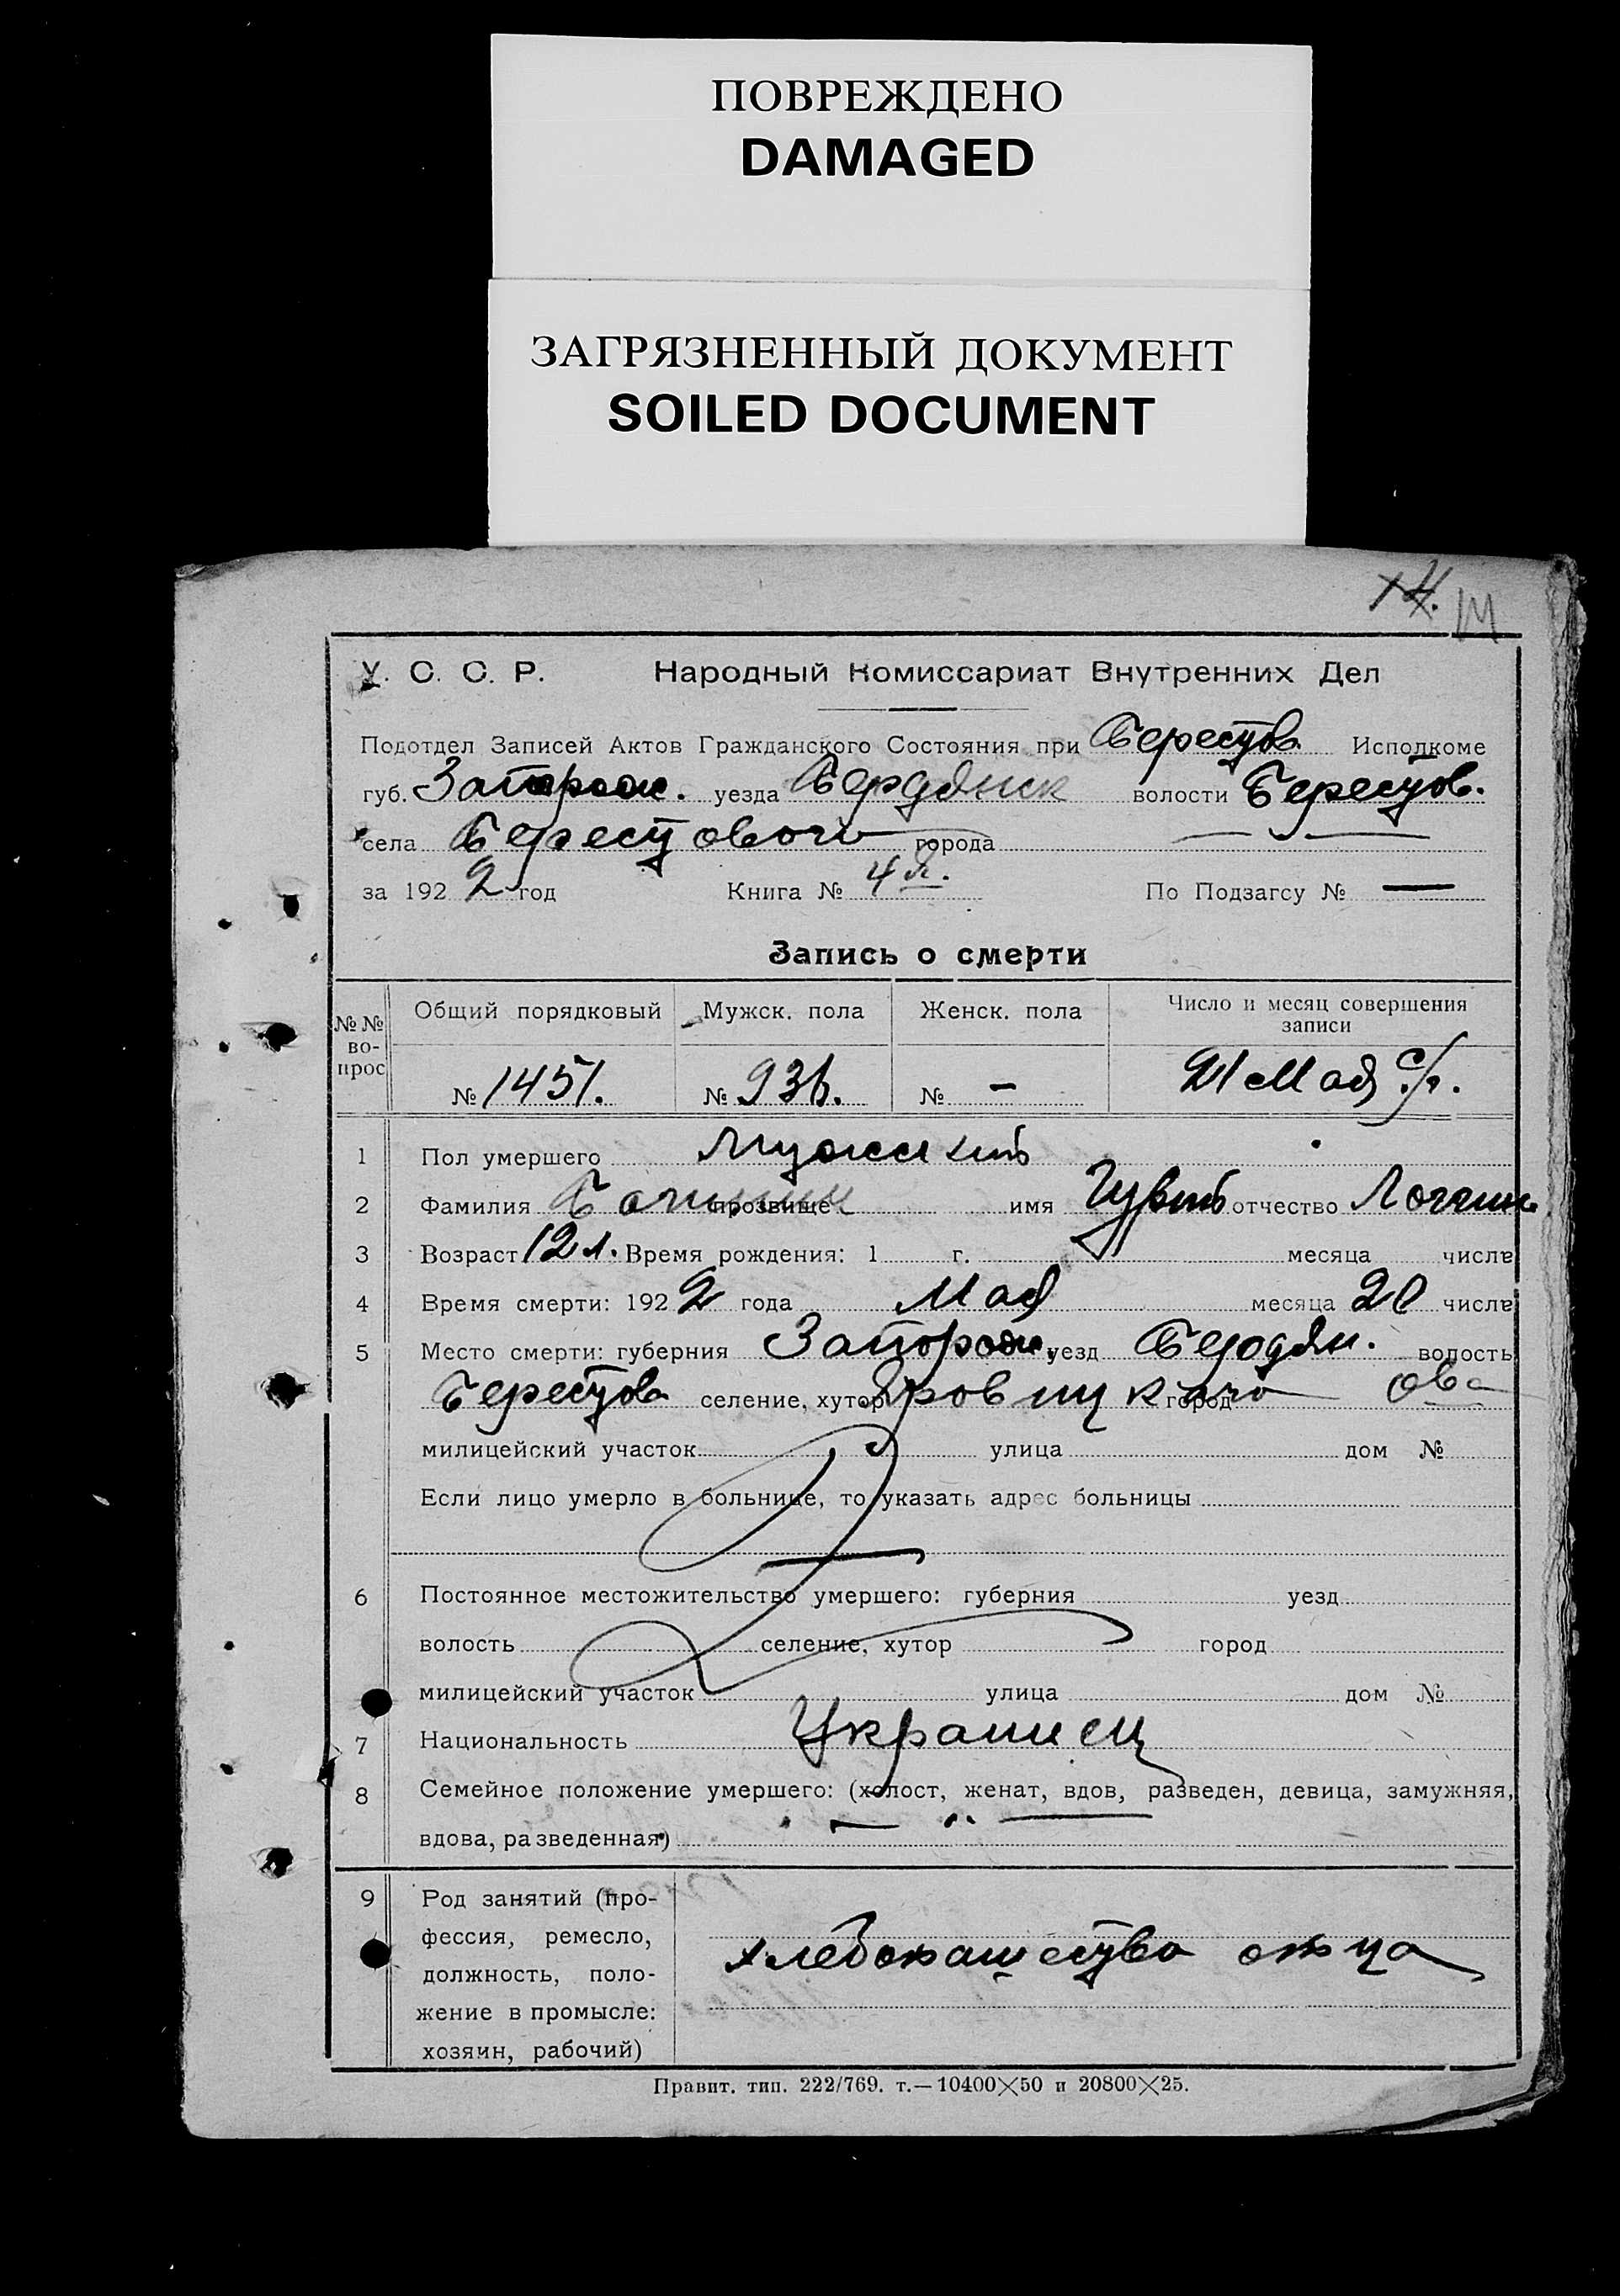 ПОВРЕЖДЕНО
DAMAGED
ЗАГРЯЗНЕННЫЙ ДОКУМЕНТ
SOILED DOCUMENT
14
У. С. С. Р. Народный Комиссариат Внутренних Дел
Подотдел Записей Актов Гражданского Состояния при Берестов Исполкоме
губ. Запорож. уезда Бердянск волости Берестов.
села Берестового города —
за 1922 год Книга № 4 По Подзагсу № —
Запись о смерти
№№ вопрос Общий порядковый Мужск. пола Женск. пола Число и месяц совершения записи
№ 1451. № 936. № — 21 Мая с/г.
1 Пол умершего Мужской
2 Фамилия прозвище имя отчество
3 Возраст 12 л. Время рождения: 1 г. месяца числа
4 Время смерти: 1922 года Мая месяца 20 числа
5 Место смерти: губерния Запорож. уезд Бердян. волость
Берестова селение, хутор город
милицейский участок улица дом №
Если лицо умерло в больнице, то указать адрес больницы
6 Постоянное местожительство умершего: губерния уезд
волость селение, хутор город
милицейский участок улица дом №
7 Национальность Украинец
8 Семейное положение умершего: (холост, женат, вдов, разведен, девица, замужняя,
вдова, разведенная)
9 Род занятий (про-
фессия, ремесло,
должность, поло- хлебопашество отца
жение в промысле:
хозяин, рабочий)
Правит. тип. 222/769. т.—10400×50 и 20800×25.